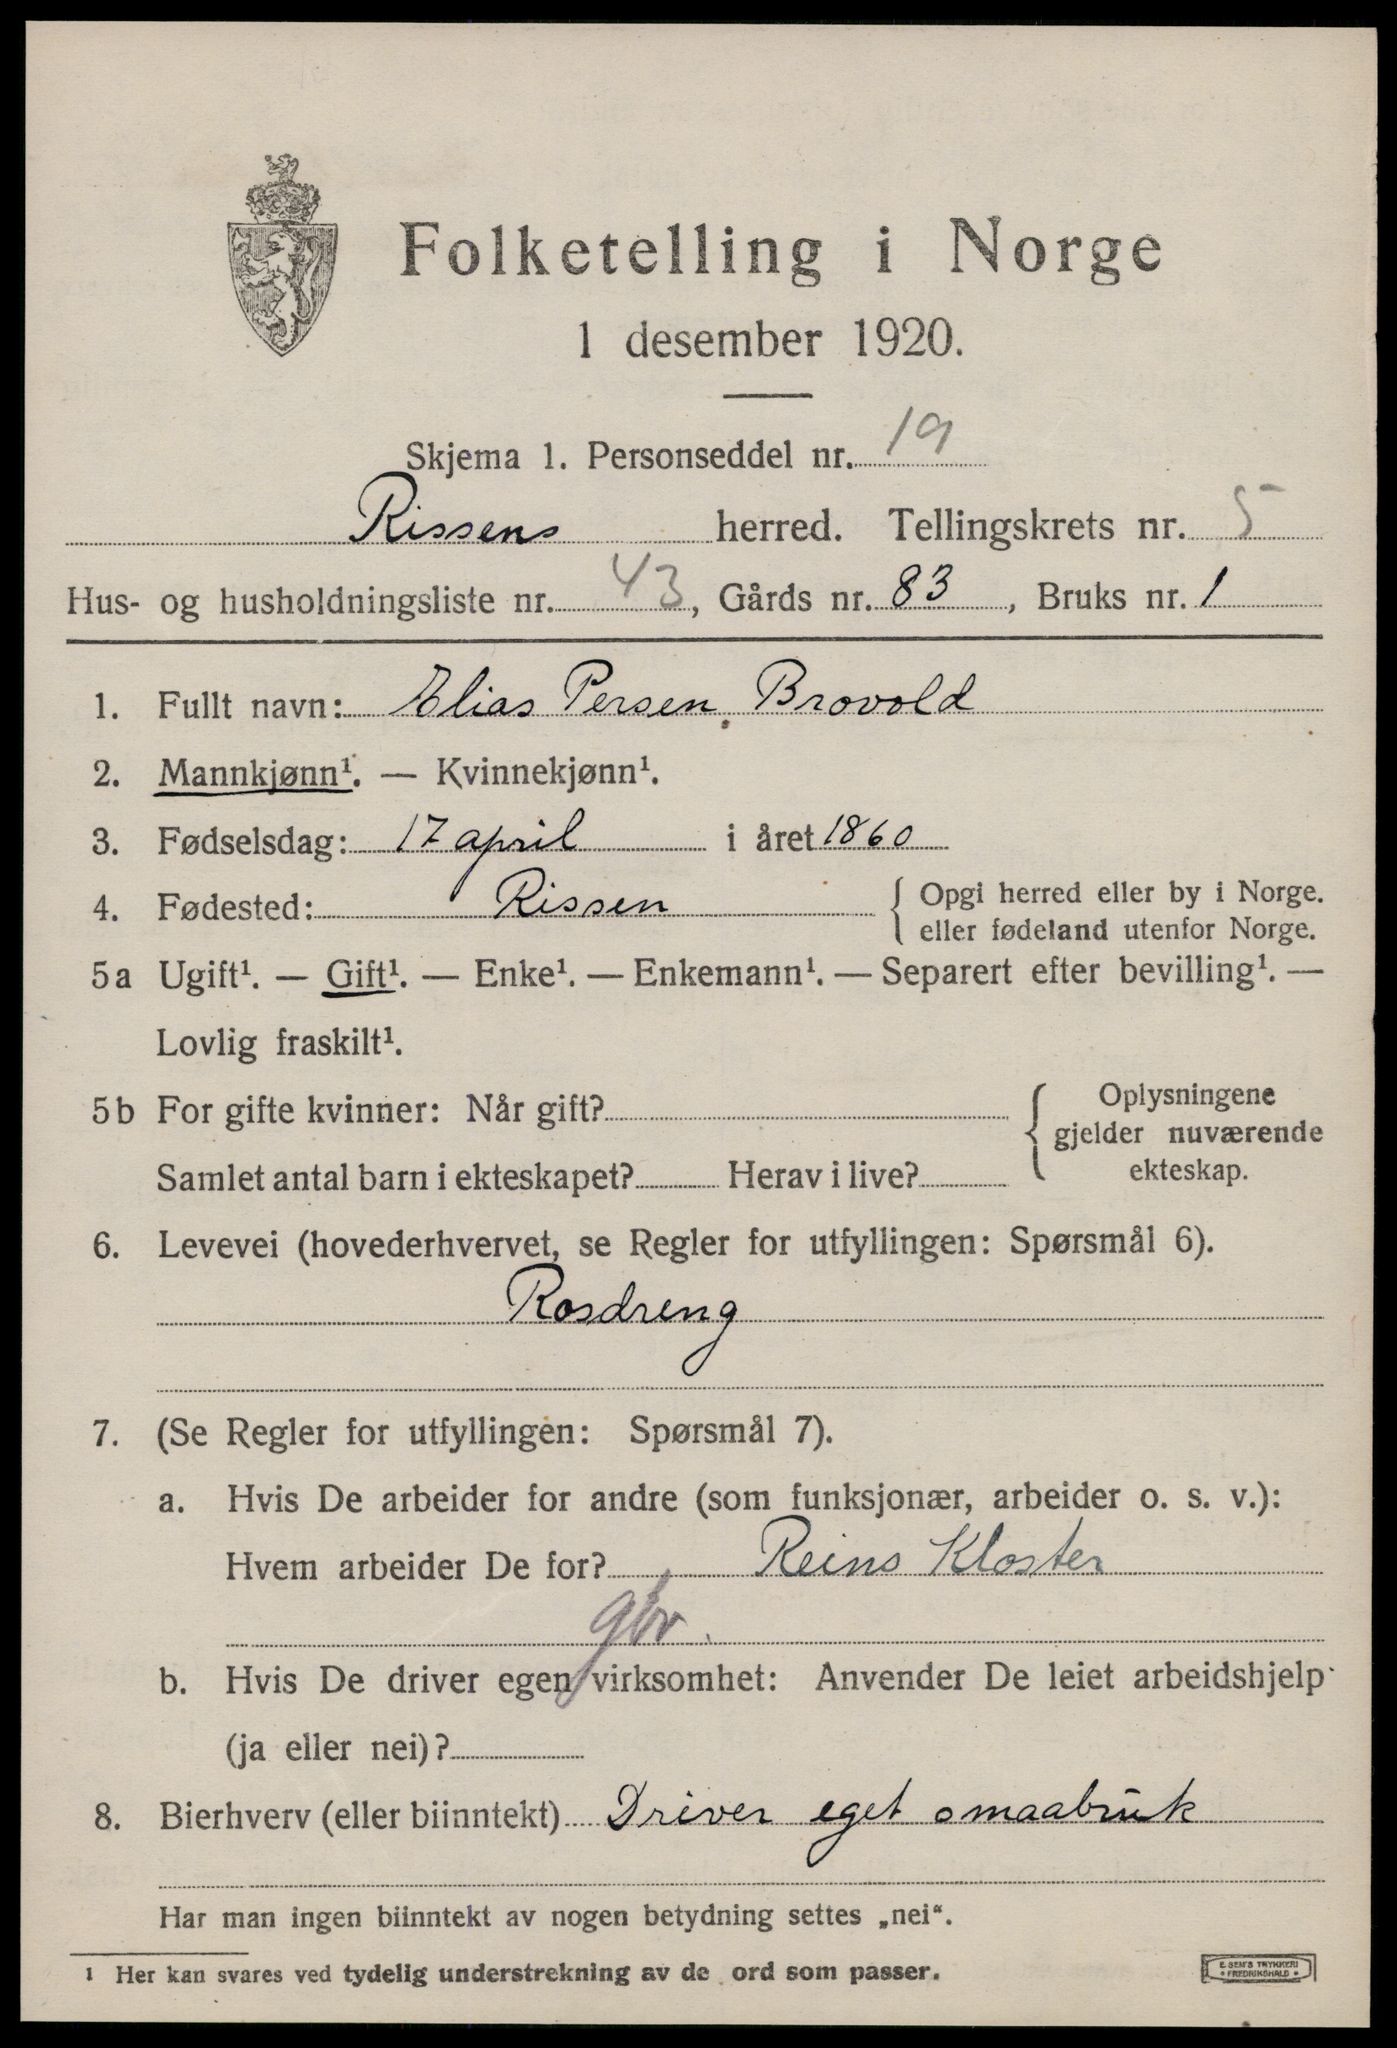 Folketelling i Norge
1 desember 1920.
Skjema 1. Personseddel nr. 19
Rissens herred. Tellingskrets nr. 5
Hus- og husholdningsliste nr. 43, Gårds nr. 83, Bruks nr. 1
1. Fullt navn: Elias Persen Brovold
2. Mannkjønn¹. — Kvinnekjønn¹.
3. Fødselsdag: 17 april i året 1860
4. Fødested: Rissen { Opgi herred eller by i Norge.
eller fødeland utenfor Norge.
5a Ugift¹. — Gift¹. — Enke¹. — Enkemann¹. — Separert efter bevilling¹. —
Lovlig fraskilt¹.
5b For gifte kvinner: Når gift? { Oplysningene
gjelder nuværende
Samlet antal barn i ekteskapet? Herav i live? ekteskap.
6. Levevei (hovederhvervet, se Regler for utfyllingen: Spørsmål 6).
Rosdreng
7. (Se Regler for utfyllingen: Spørsmål 7).
a. Hvis De arbeider for andre (som funksjonær, arbeider o. s. v.):
Hvem arbeider De for? Reins Kloster
b. Hvis De driver egen virksomhet: Anvender De leiet arbeidshjelp
(ja eller nei)?
8. Bierhverv (eller biinntekt) Driver eget smaabruk
Har man ingen biinntekt av nogen betydning settes „nei“.
1 Her kan svares ved tydelig understrekning av de ord som passer.
E. SEM'S TRYKKERI
FREDRIKSHALD